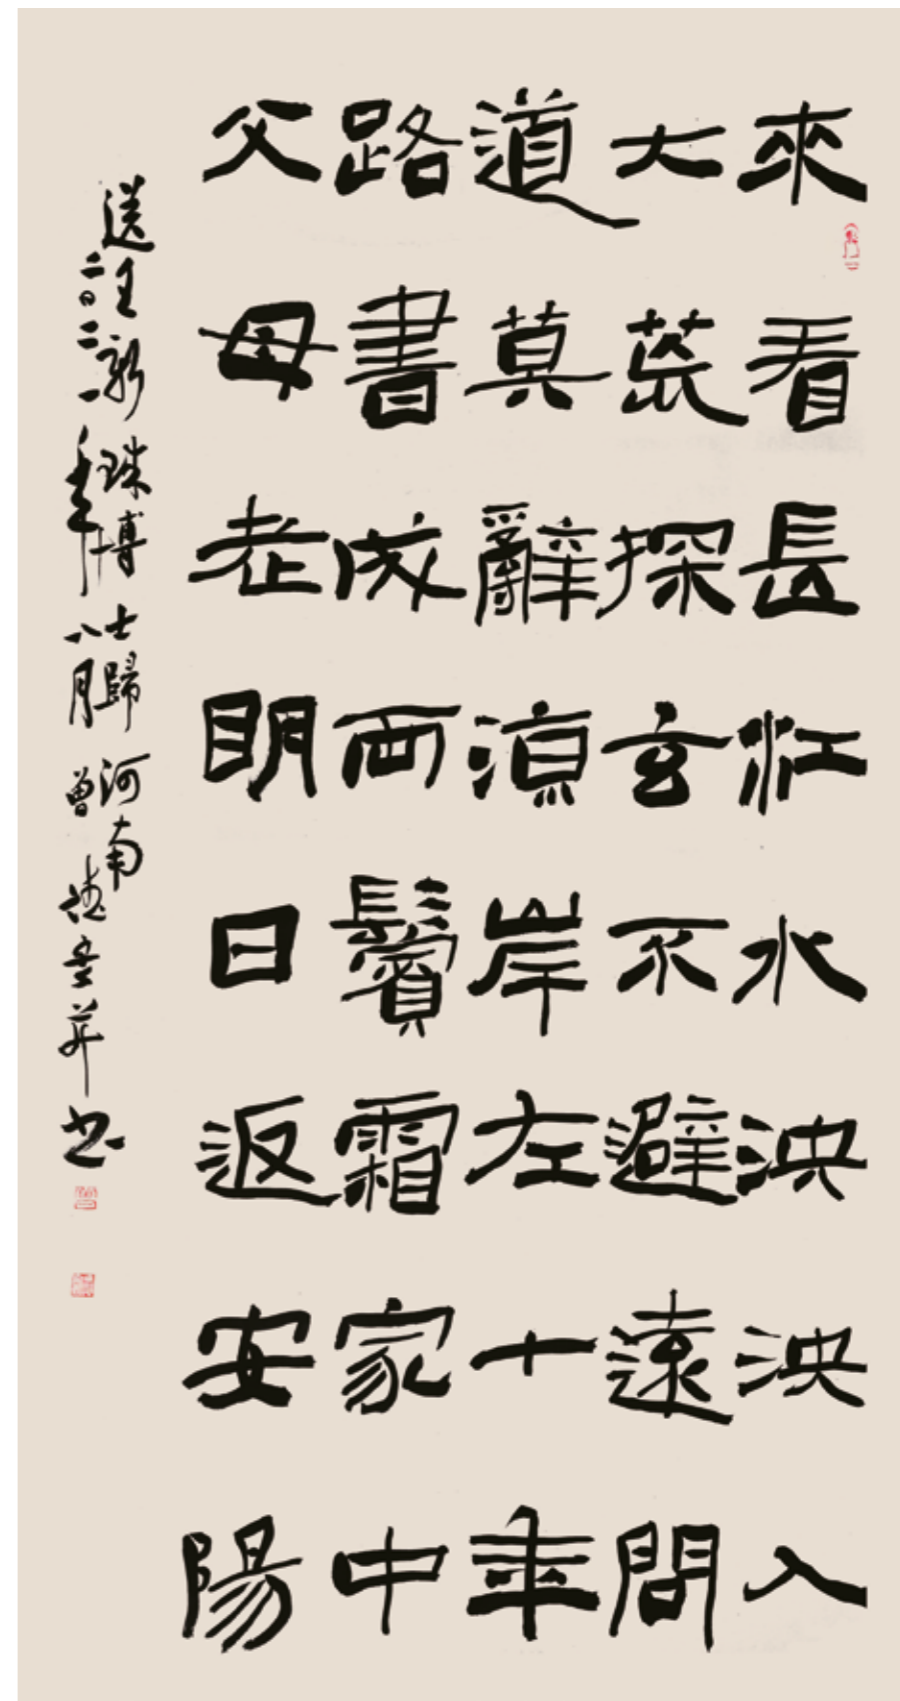 來看長江水泱泱入
大荒探玄不避遠問
道莫辭涼岸左十年
路書成兩鬢霜家中
父母老明日返安陽
送王新珠博士歸河南
二〇二一年八月曾并書